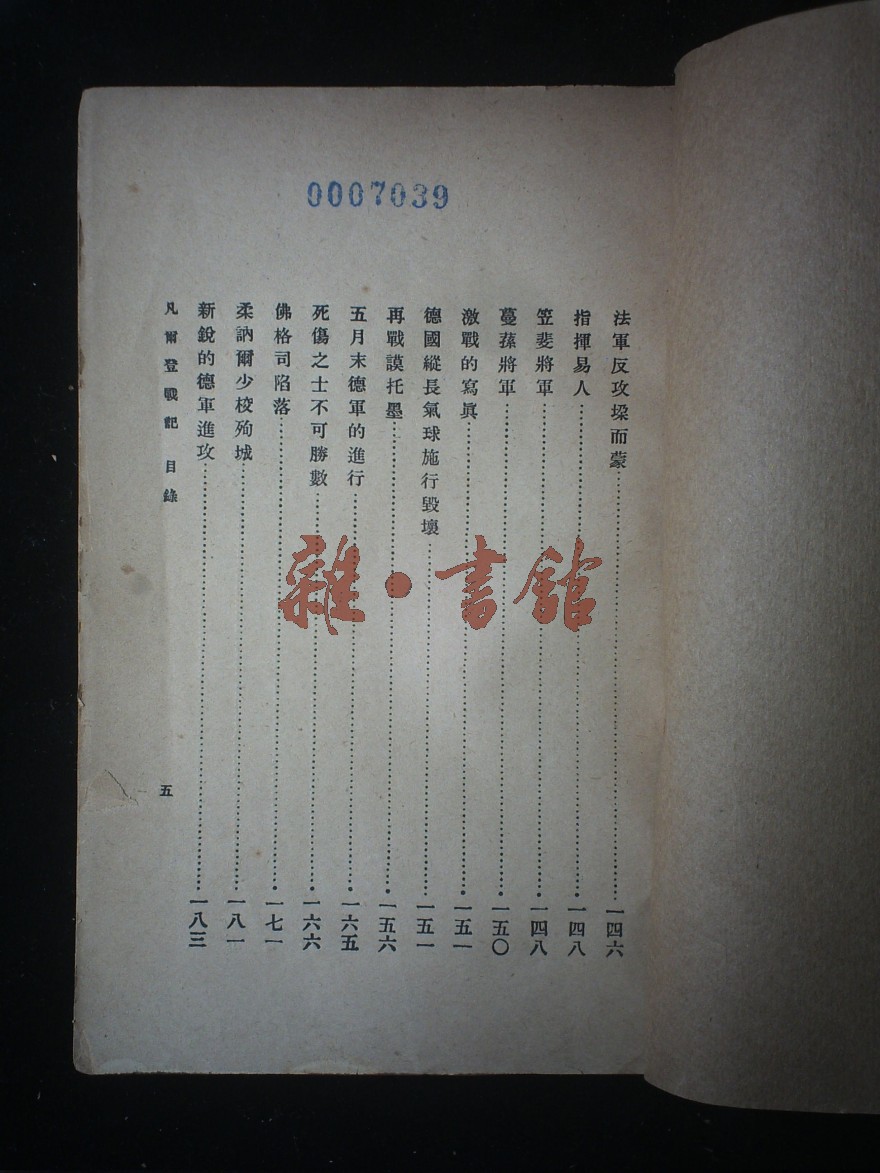 0007039
法軍反攻梁而蒙一四六
指揮易人一四八
笠斐將軍一四八
蔓蓀將軍一五〇
激戰的寫眞一五一
德國縱長氣球施行毀壞一五一
再戰謨托墨一五六
五月末德軍的進行一六五
死傷之士不可勝數一六六
佛格司陷落一七一
柔訥爾少校殉城一八一
新銳的德軍進攻一八三
凡爾登戰記 目錄 五
雜·書館